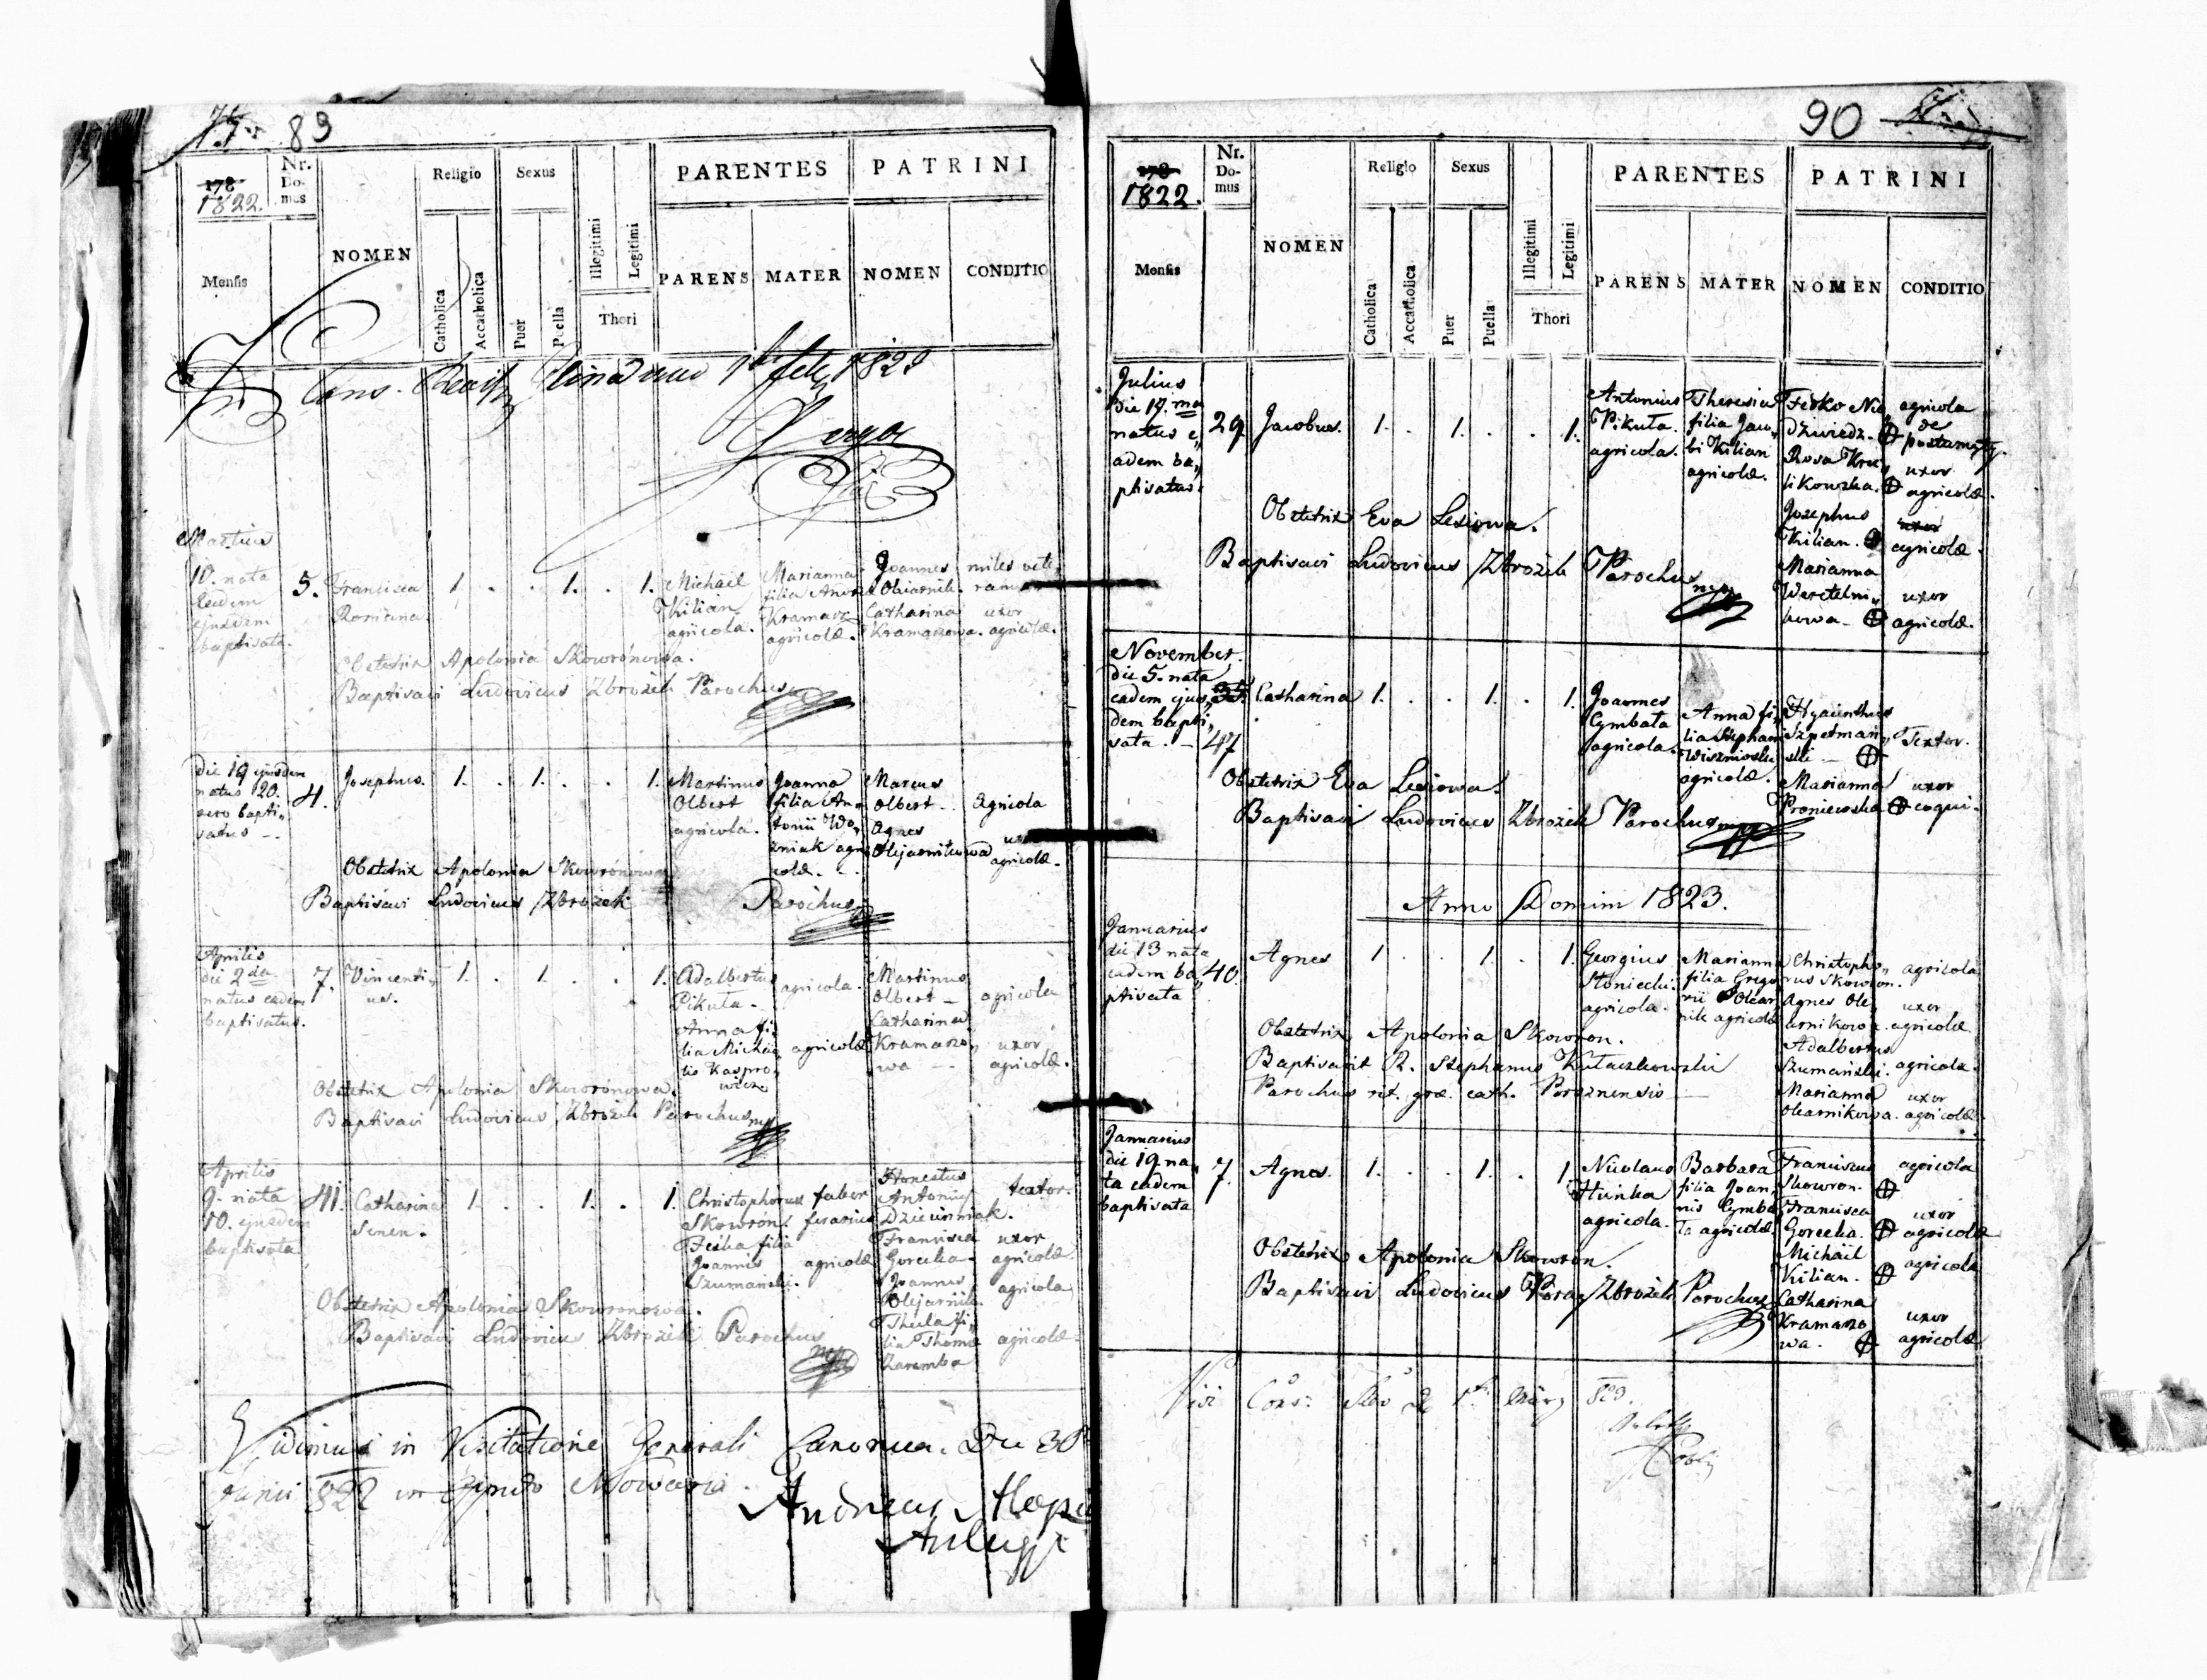 89
178
1822.
Nr. Do- mus
Mensis
NOMEN
Religio
Catholica
Accatholica
Sexus
Puer
Puella
Illegitimi
Legitimi
Thori
PARENTES
PARENS
MATER
PATRINI
NOMEN
CONDITIO
Martius
10. nata
eadem
ejusdem
baptisata.
5.
Francisca
Romana.
1. . . 1. . 1.
Michaël
Kilian
agricola.
Marianna
filia Andreæ
Kramarz
agricolæ.
Joannes
Catharina
Kramarzowa.
miles vete„
ranus
uxor
agricolæ.
Obstetrix Apolonia Skowronowa.
Baptisavi Ludovicus Zbrożek Parochus
Die 19 ejusdem
natus 20.
vero bapti„
satus -.
4.
Josephus.
1. . 1. . . 1.
Martinus
Olbert
agricola.
Joanna
filia An„
tonii Wo„
zniak agri
colæ.
Marcus
Olbert -.
Agnes
Olejarnikowa
Agricola
uxor
agricolæ.
Obstetrix Apolonia Skowronowa
Baptisavi Ludovicus Zbrożek Parochus
Aprilis
die 2da
natus eadem
baptisatus.
7.
Vincenti„
us.
1. . 1. . . 1.
Adalbertus
Pikuła -
agricola.
Anna fi„
lia Michaë„
lis Kaspro„
wicz
agricolæ
Martinus
Olbert -
Catharina
Kramarzo„
wa -.
agricola
uxor
agricolæ.
Obstetrix Apolonia Skowronowa.
Baptisavi Ludovicus Zbrożek Parochus mp
Aprilis
9. nata
10. ejusdem
baptisata
41.
Catharina
Senen.
1. . . 1. . 1.
Christophorus
Skowron.
faber
ferarius
Feśka filia
Joannis
Szumański.
agricolæ
Honestus
Antonius
Dziecinniak.
Francisca
Gorecka.
Joannes
Olejarnik.
Thecla fi„
lia Thomæ
Zaremba
textor.
uxor
agricolæ
agricola
agricolæ.
Obstetrix Apolonia Skowronowa.
Baptisavi Ludovicus Zbrożek Parochus
mp
Vidimus in Visitatione Generali Canonica. Die 30
Junii 822 in
Andreas
90
178
1822.
Nr. Do- mus
Mensis
NOMEN
Religio
Catholica
Accatholica
Sexus
Puer
Puella
Illegitimi
Legitimi
Thori
PARENTES
PARENS
MATER
PATRINI
NOMEN
CONDITIO
Julius
Die 17. ma
natus e„
adem ba„
ptisatus.
29.
Jacobus.
1. . 1. . . 1.
Antonius
Pikuła.
agricola.
Theresia
filia Jaco„
bi Kilian
agricolæ.
Fedko Nie„
dzwiedz.
Rosa Kru„
likowska.
Josephus
Kilian.
Marianna
Wereteln„
kowa -
agricola
de
uxor
agricolæ.
uxor
agricolæ.
uxor
agricolæ.
Obstetrix Eva Lesiowa.
Baptisavi Ludovicus Zbrożek Parochus
mp
November.
die 5. nata
eadem ejus„
dem bapti„
sata. -
47
Catharina
1. . . 1. . 1.
Joannes
Cymbała
agricola.
Anna fi„
lia Stephani
Wiszniowski
agricolæ.
Hyacinthus
Szpetmań„
ski -
Marianna
Proniewska
Textor.
uxor
coqui.
Obstetrix Eva Lesiowa.
Baptisavi Ludovicus Zbrożek Parochus mpp
Anno Domini 1823.
Januarius
die 13 nata
eadem ba„
ptisata
40.
Agnes
1 . . 1 . 1.
Georgius
Słoniecki.
agricola.
Marianna
filia Grego
rii Olear
nik agricolæ
Christopho„
rus Skowron.
Agnes Ole„
arnikowa.
Adalbertus
Szumański.
Marianna
Olearnikowa.
agricola
uxor
agricolæ
agricola.
uxor
agricolæ
Obstetrix Apolonia Skowron.
Baptisavit R. Stephanus Kułaczkowski
Parochus rit. græ. cath. Poroznensis
Januarius
die 19. na„
ta eadem
baptisata
7.
Agnes.
1. . . 1. . 1
Nicolaus
Hunka
agricola.
Barbara
filia Joan„
nis Cymba
ła agricolæ
Franciscus
Skowron.
Francisca
Gorecka.
Michaël
Kilian.
Catharina
Kramarzo
wa.
agricola
uxor
agricolæ
agricola
uxor
agricolæ
Obstetrix Apolonia Skowron.
Baptisavi Ludovicus Poray Zbrożek Parochus